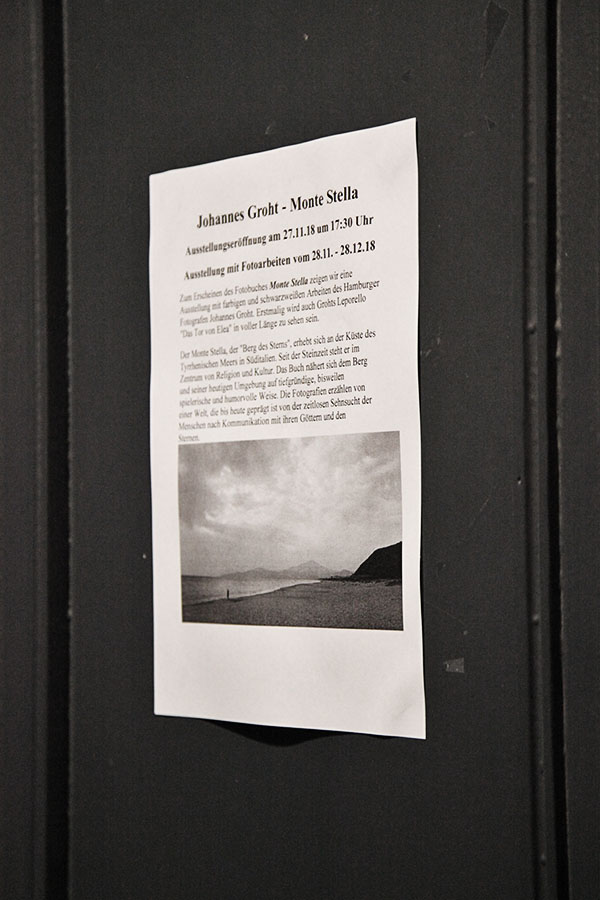 Johannes Groht - Monte Stella
Ausstellungseröffnung am 27.11.18 um 17:30 Uhr
Ausstellung mit Fotoarbeiten vom 28.11. - 28.12.18
Zum Erscheinen des Fotobuches Monte Stella zeigen wir eine
Ausstellung mit farbigen und schwarzweißen Arbeiten des Hamburger
Fotografen Johannes Groht. Erstmalig wird auch Grohts Leporello
"Das Tor von Elea" in voller Länge zu sehen sein.
Der Monte Stella, der "Berg des Sterns", erhebt sich an der Küste des
Tyrrhenischen Meers in Süditalien. Seit der Steinzeit steht er im
Zentrum von Religion und Kultur. Das Buch nähert sich dem Berg
und seiner heutigen Umgebung auf tiefgründige, bisweilen
spielerische und humorvolle Weise. Die Fotografien erzählen von
einer Welt, die bis heute geprägt ist von der zeitlosen Sehnsucht der
Menschen nach Kommunikation mit ihren Göttern und den
Sternen.